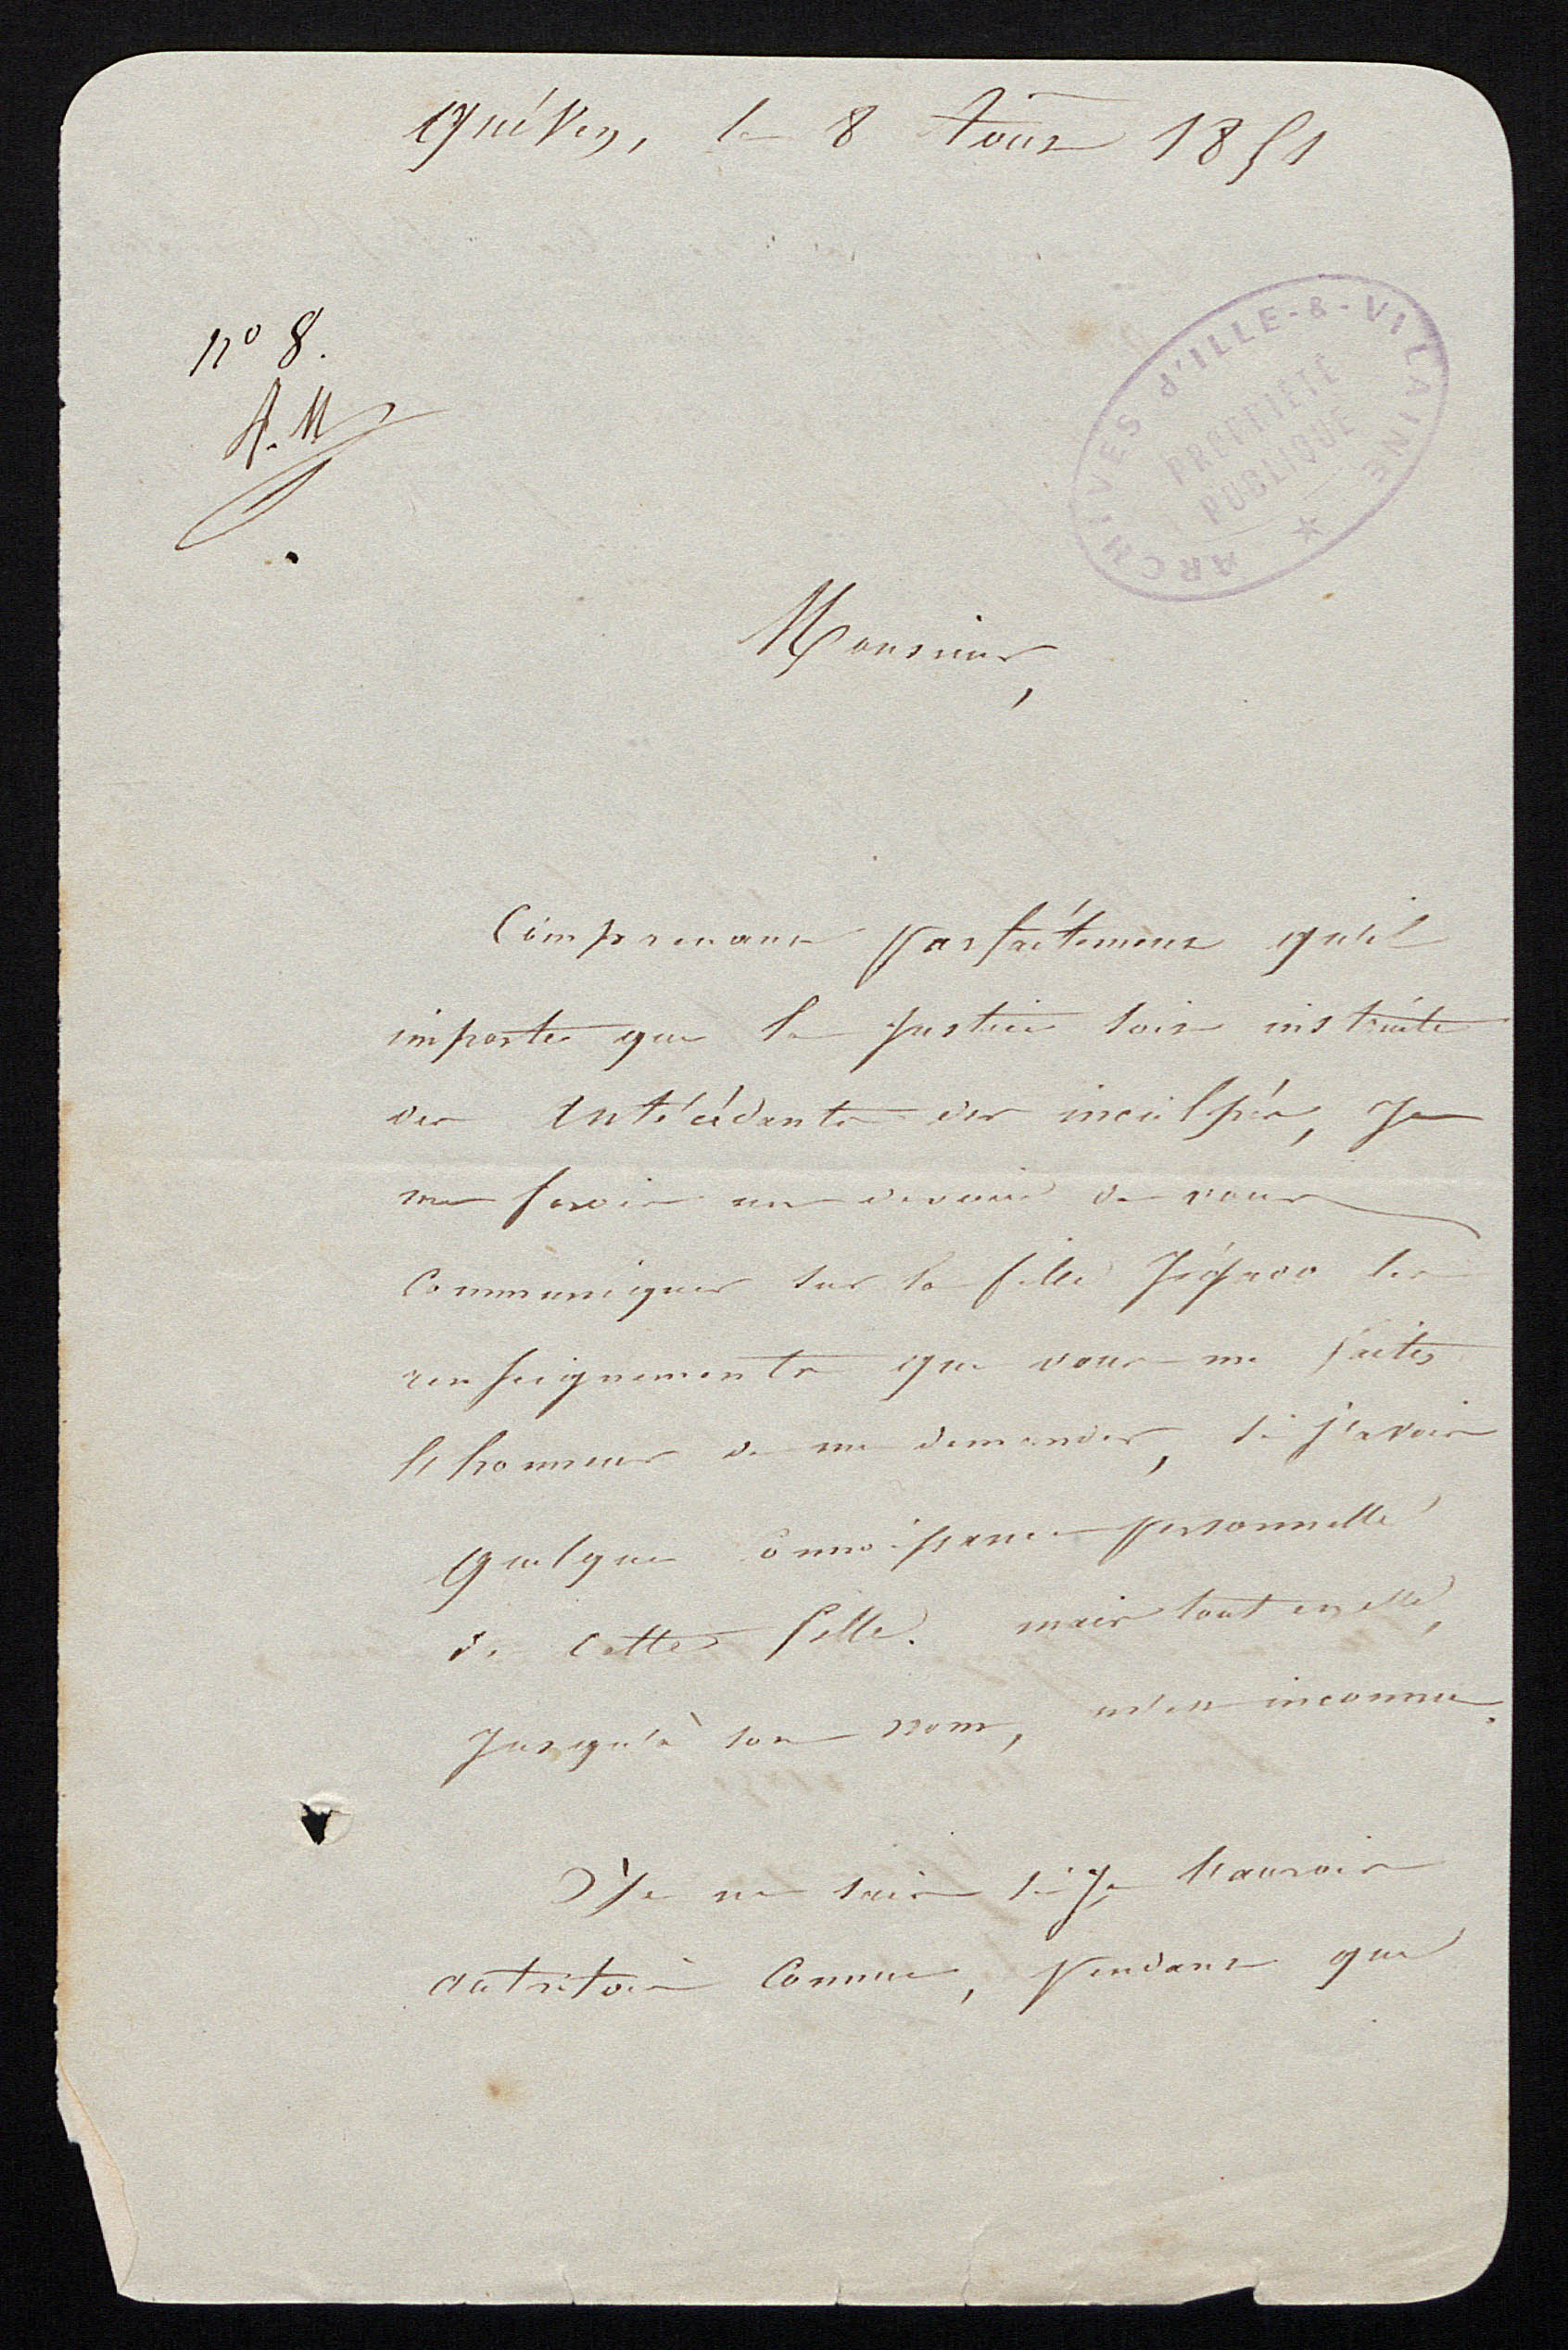 Quéven, le 8 Août 1851
n° 8.
A. M
ARCHIVES d'ILLE-&-VILAINE
PROPRIÉTÉ
PUBLIQUE
Monsieur,
Comprenant parfaitement qu'il
importe que la justice soit instruite
des antécédants des inculpés, je
me ferois un devoir de vous
communiquer sur la fille Jégado les
renseignements que vous me faites
l'honneur de me demander, si j'avois
quelque connoissance personnelle
de cette fille. mais tout en elle,
jusqu'à son nom, m'est inconnu.
Je ne sais si je l'aurois
autrefois connue, pendant que